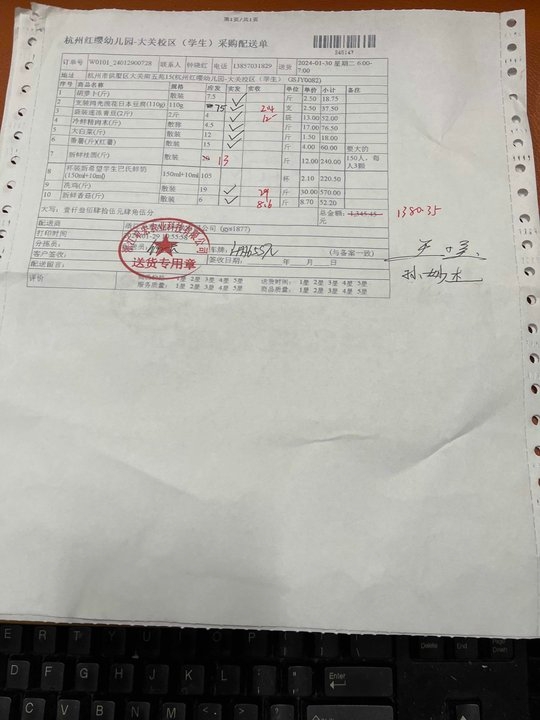 第1页/共1页
杭州红缨幼儿园-大关校区（学生）采购配送单
245147
订单号 W0101_24012900728 联系人 钟晓红 电话 13857031829 送货 2024-01-30 星期二 6:00-7:00
地址 杭州市拱墅区大关街五苑15(杭州红缨幼儿园-大关校区（学生）(JSJY0082)
序号 商品名称 规格 应发 实发 实收 单位 单价 小计 备注
1 胡萝卜(斤) 散装 7.5 斤 2.50 18.75
2 支装鸿光浪花日本豆腐(110g) 110g 75 支 2.50 37.50
3 袋装速冻青豆(2斤) 2斤 4 袋 13.00 52.00
4 冷鲜精肉末(斤) 散称 4.5 斤 17.00 76.50
5 大白菜(斤) 散装 12 斤 1.50 18.00
6 番薯(斤)(红薯) 散装 15 斤 4.00 60.00 要大的
7 新鲜桂圆(斤) 散装 20 13 斤 12.00 240.00 150人，每人3颗
8 杯装新希望学生巴氏鲜奶(150ml+10ml) 150ml+10ml 105 杯 2.10 220.50
9 洗鸡(斤) 散装 19 斤 30.00 570.00
10 新鲜香菇(斤) 散装 6 8.6 斤 8.70 52.20
大写：壹仟叁佰肆拾伍元肆角伍分 总金额：1,345.45元 1380.35
配送商 公司（gys1877）
打印时间
分拣员： 车牌： (与备案一致)
客户签收： 签收日期： 年 月 日
配送留言：
送货专用章
评价 1星 2星 3星 4星 5星 送货时间： 1星 2星 3星 4星 5星
服务质量： 1星 2星 3星 4星 5星 商品质量： 1星 2星 3星 4星 5星
E R T Y U I O P
Delete End Page Down
D F G H J K L
Enter
C V B N M
Shift